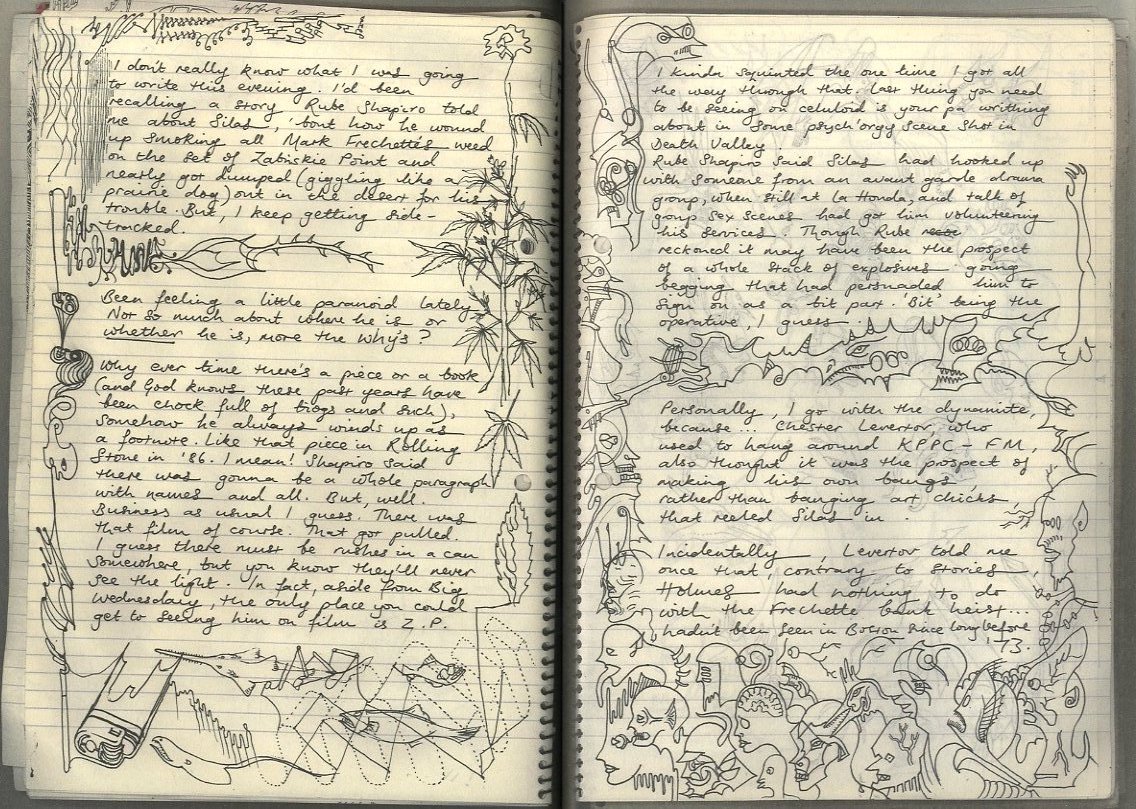 I don't really know what I was going
to write this evening. I'd been
recalling a story Rube Shapiro told
me about Silas, 'bout how he wound
up smoking all Mark Frechettes weed
on the set of Zabiskie Point and
nearly got dumped (giggling like a
prairie dog) out in the desert for his
trouble. But, I keep getting side-
tracked.
Been feeling a little paranoid lately
Not so much about where he is or
whether he is, more the why's?
Why ever time there's a piece or a book
(and God knows these past years have
been chock full of biogs and such),
somehow he always winds up as
a footnote. Like that piece in Rolling
Stone in '86. I mean! Shapiro said
there was gonna be a whole paragraph
with names and all. But, well.
Business as usual I guess. There was
that film of course. That got pulled.
I guess there must be rushes in a can
somewhere, but you know they'll never
see the light. In fact, aside from Big
Wednesday, the only place you could
get to seeing him on film is Z.P.
I kinda squinted the one time I got all
the way through that. Last thing you need
to be seeing on celuloid is your pa writhing
about in some psych'orgy scene shot in
Death Valley
Rube Shapiro said Silas had hooked up
with someone from an avant garde drama
group, when still at La Honda, and talk of
group sex scenes had got him volunteering
his services. Though Rube
reckoned it may have been the prospect
of a whole stack of explosives going
begging that had persuaded him to
sign on as a bit part. 'Bit' being the
operative, I guess...
Personally, I go with the dynamite,
because... Chester Levertov, who
used to hang around KPPC-FM,
also thought it was the prospect of
making his own bangs
rather than banging art chicks,
that reeled Silas in.
Incidentally, Levertov told me
once that, contrary to stories,
Holmes had nothing to do
with the Frechette bank heist...
hadn't been seen in Boston since long before
'73.